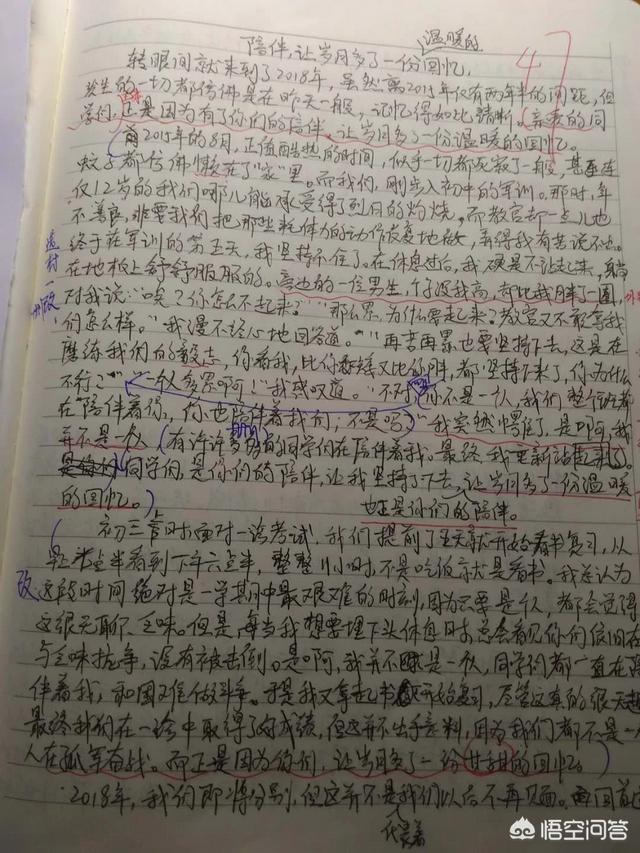 温暖的
陪伴,让岁月多了一份回忆.
47
转眼间就来到了2018年,虽然离2015年仅有两年半的间距,但
发生的一切都仿佛是在昨天一般,记忆得如此清晰.亲爱的同
学们,还是因为有了你们的陪伴,让岁月多了一份温暖的回忆。
2015年的8月,正值酷热的时间,似乎一切都死寂了一般,甚至连
蚊子都仿佛懒在了“家”里。而我们,刚步入初中的军训。那时,年
仅12岁的我们哪儿能承受得了烈日的灼烧。而教官却一点儿也
不善良,非要我们把那些耗体力的动作反复地做,弄得我有苦说不出。
终于在军训的第五天,我坚持不住了。在休息过后,我硬是不站起来,
在地板上舒舒服服的。旁边的一位男生,个子没我高,却比我胖了一圈,
对我说:“咦?你怎么不起来?”“那么累,为什么要起来?教官又不敢拿我
们怎么样。”我漫不经心地回答道。“再苦再累也要坚持下去,这是在
磨练我们的毅志,你看我,比你矮又比你胖,都坚持下来了,你为什么
不行?”“一个人多累啊!”我感叹道。“不对,你不是一个人,我们整个班都
在陪伴着你,你也陪伴着我们,不是吗?”我突然愣住了,是啊,我
并不是一个人(有许许多多的同学们在陪伴着我。最终,我重新站起来了。
同学们,是你们的陪伴,让我坚持了下去,让岁月多了一份温暖
的回忆。)
也正是你们的陪伴。
初三上面对一诊考试,我们提前了五天就开始看书复习,从
早七点半看到下午六点半,整整11小时,不是吃饭就是看书。我差认为
改
这段时间绝对是一学期中最艰难的时刻,因为只要是个人,都会觉得
这很无聊、乏味。但是,每当我想要埋下头休息时,总会看见你们依旧在
与乏味抗争,没有被击倒。是啊,我并不是一个人,同学们都一直在陪
伴着我,和困难做斗争。于是我又拿起书开始复习,尽管这真的很无趣
最终我们在一诊中取得了好成绩,但这并不出乎意料,因为我们都不是一
人在孤军奋战。而正是因为你们,让岁月多了一份甘甜的回忆。)
2018年,我们即将分别,但这并不是我们以后不再见面。再回首
代表着
悟空问答